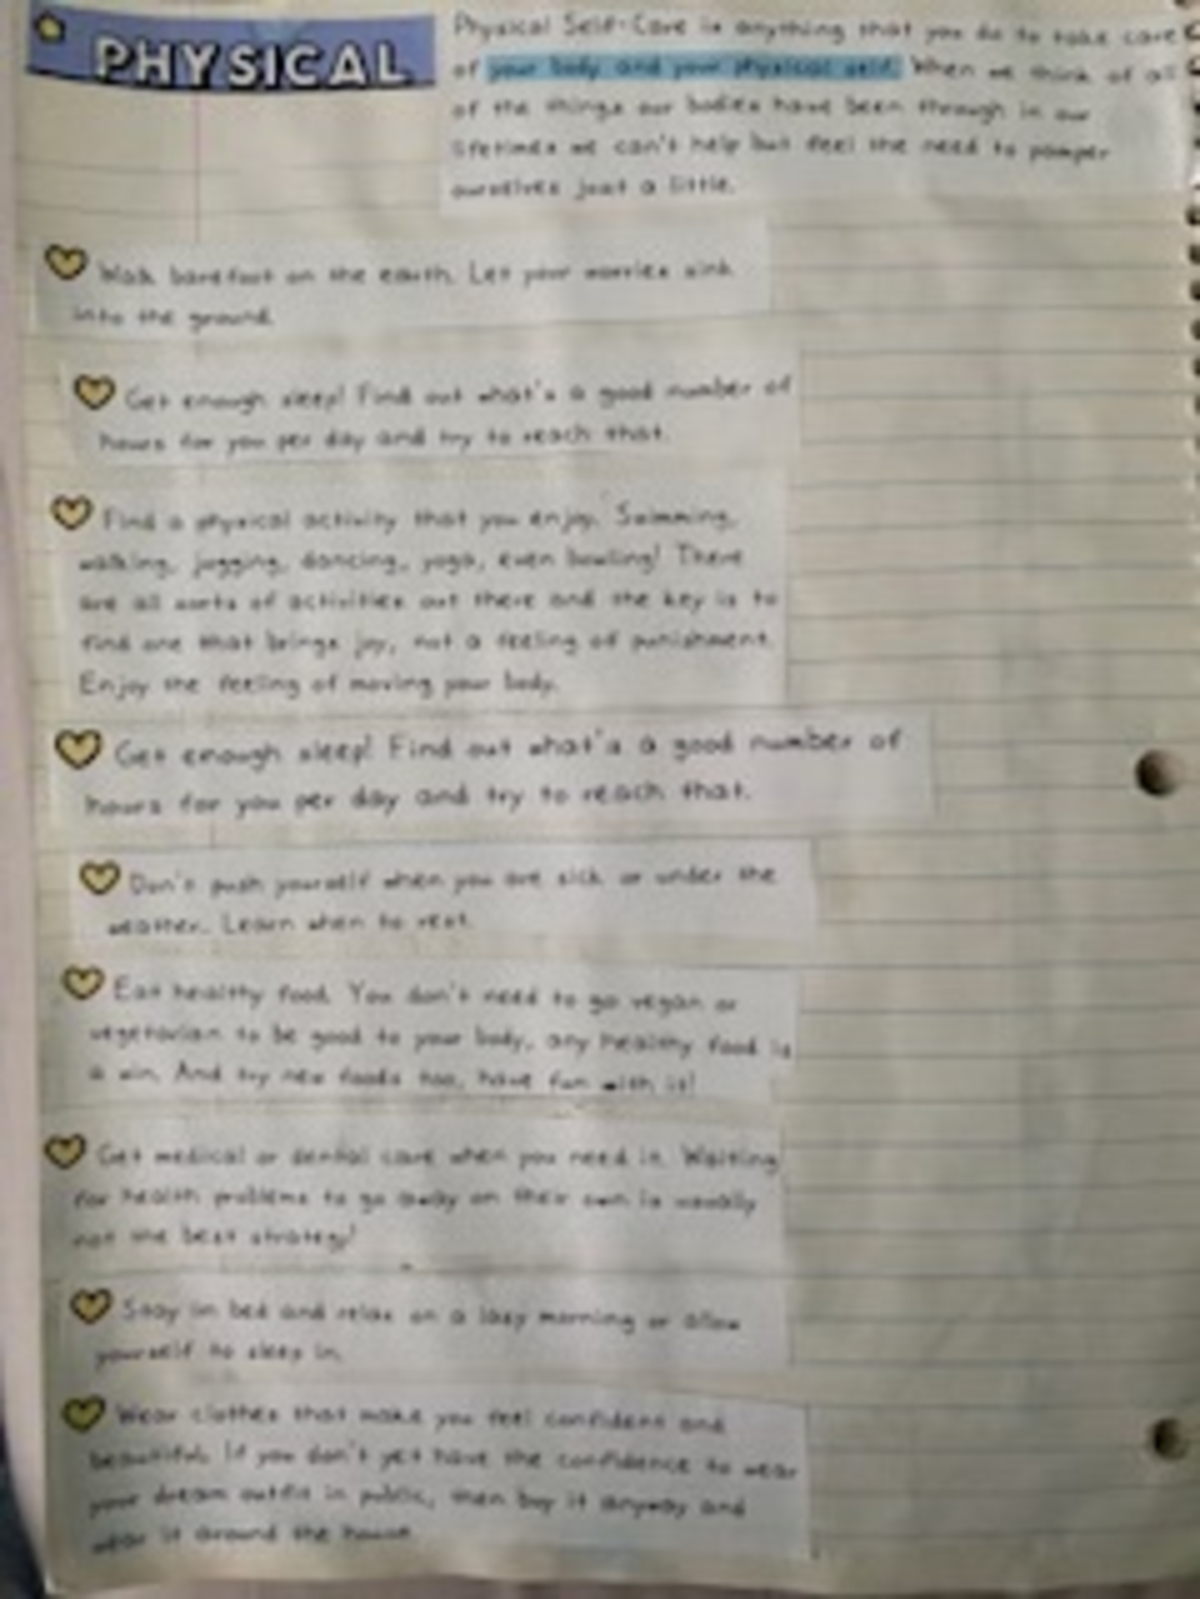 PHYSICAL
Physical Self-Care is anything that you do to take care
of your body and your physical self. When we think of all
of the things our bodies have been through in our
lifetimes we can't help but feel the need to pamper
ourselves just a little.
Walk barefoot on the earth. Let your worries sink
into the ground.
Get enough sleep! Find out what's a good number of
hours for you per day and try to reach that.
Find a physical activity that you enjoy. Swimming,
walking, jogging, dancing, yoga, even bowling! There
are all sorts of activities out there and the key is to
find one that brings joy, not a feeling of punishment.
Enjoy the feeling of moving your body.
Get enough sleep! Find out what's a good number of
hours for you per day and try to reach that.
Don't push yourself when you are sick or under the
weather. Learn when to rest.
Eat healthy food. You don't need to go vegan or
vegetarian to be good to your body, any healthy food is
a win. And try new foods too, have fun with it!
Get medical or dental care when you need it. Waiting
for health problems to go away on their own is usually
not the best strategy!
Stay in bed and relax on a lazy morning or allow
yourself to sleep in.
Wear clothes that make you feel confident and
beautiful. If you don't yet have the confidence to wear
your dream outfit in public, then buy it anyway and
wear it around the house.